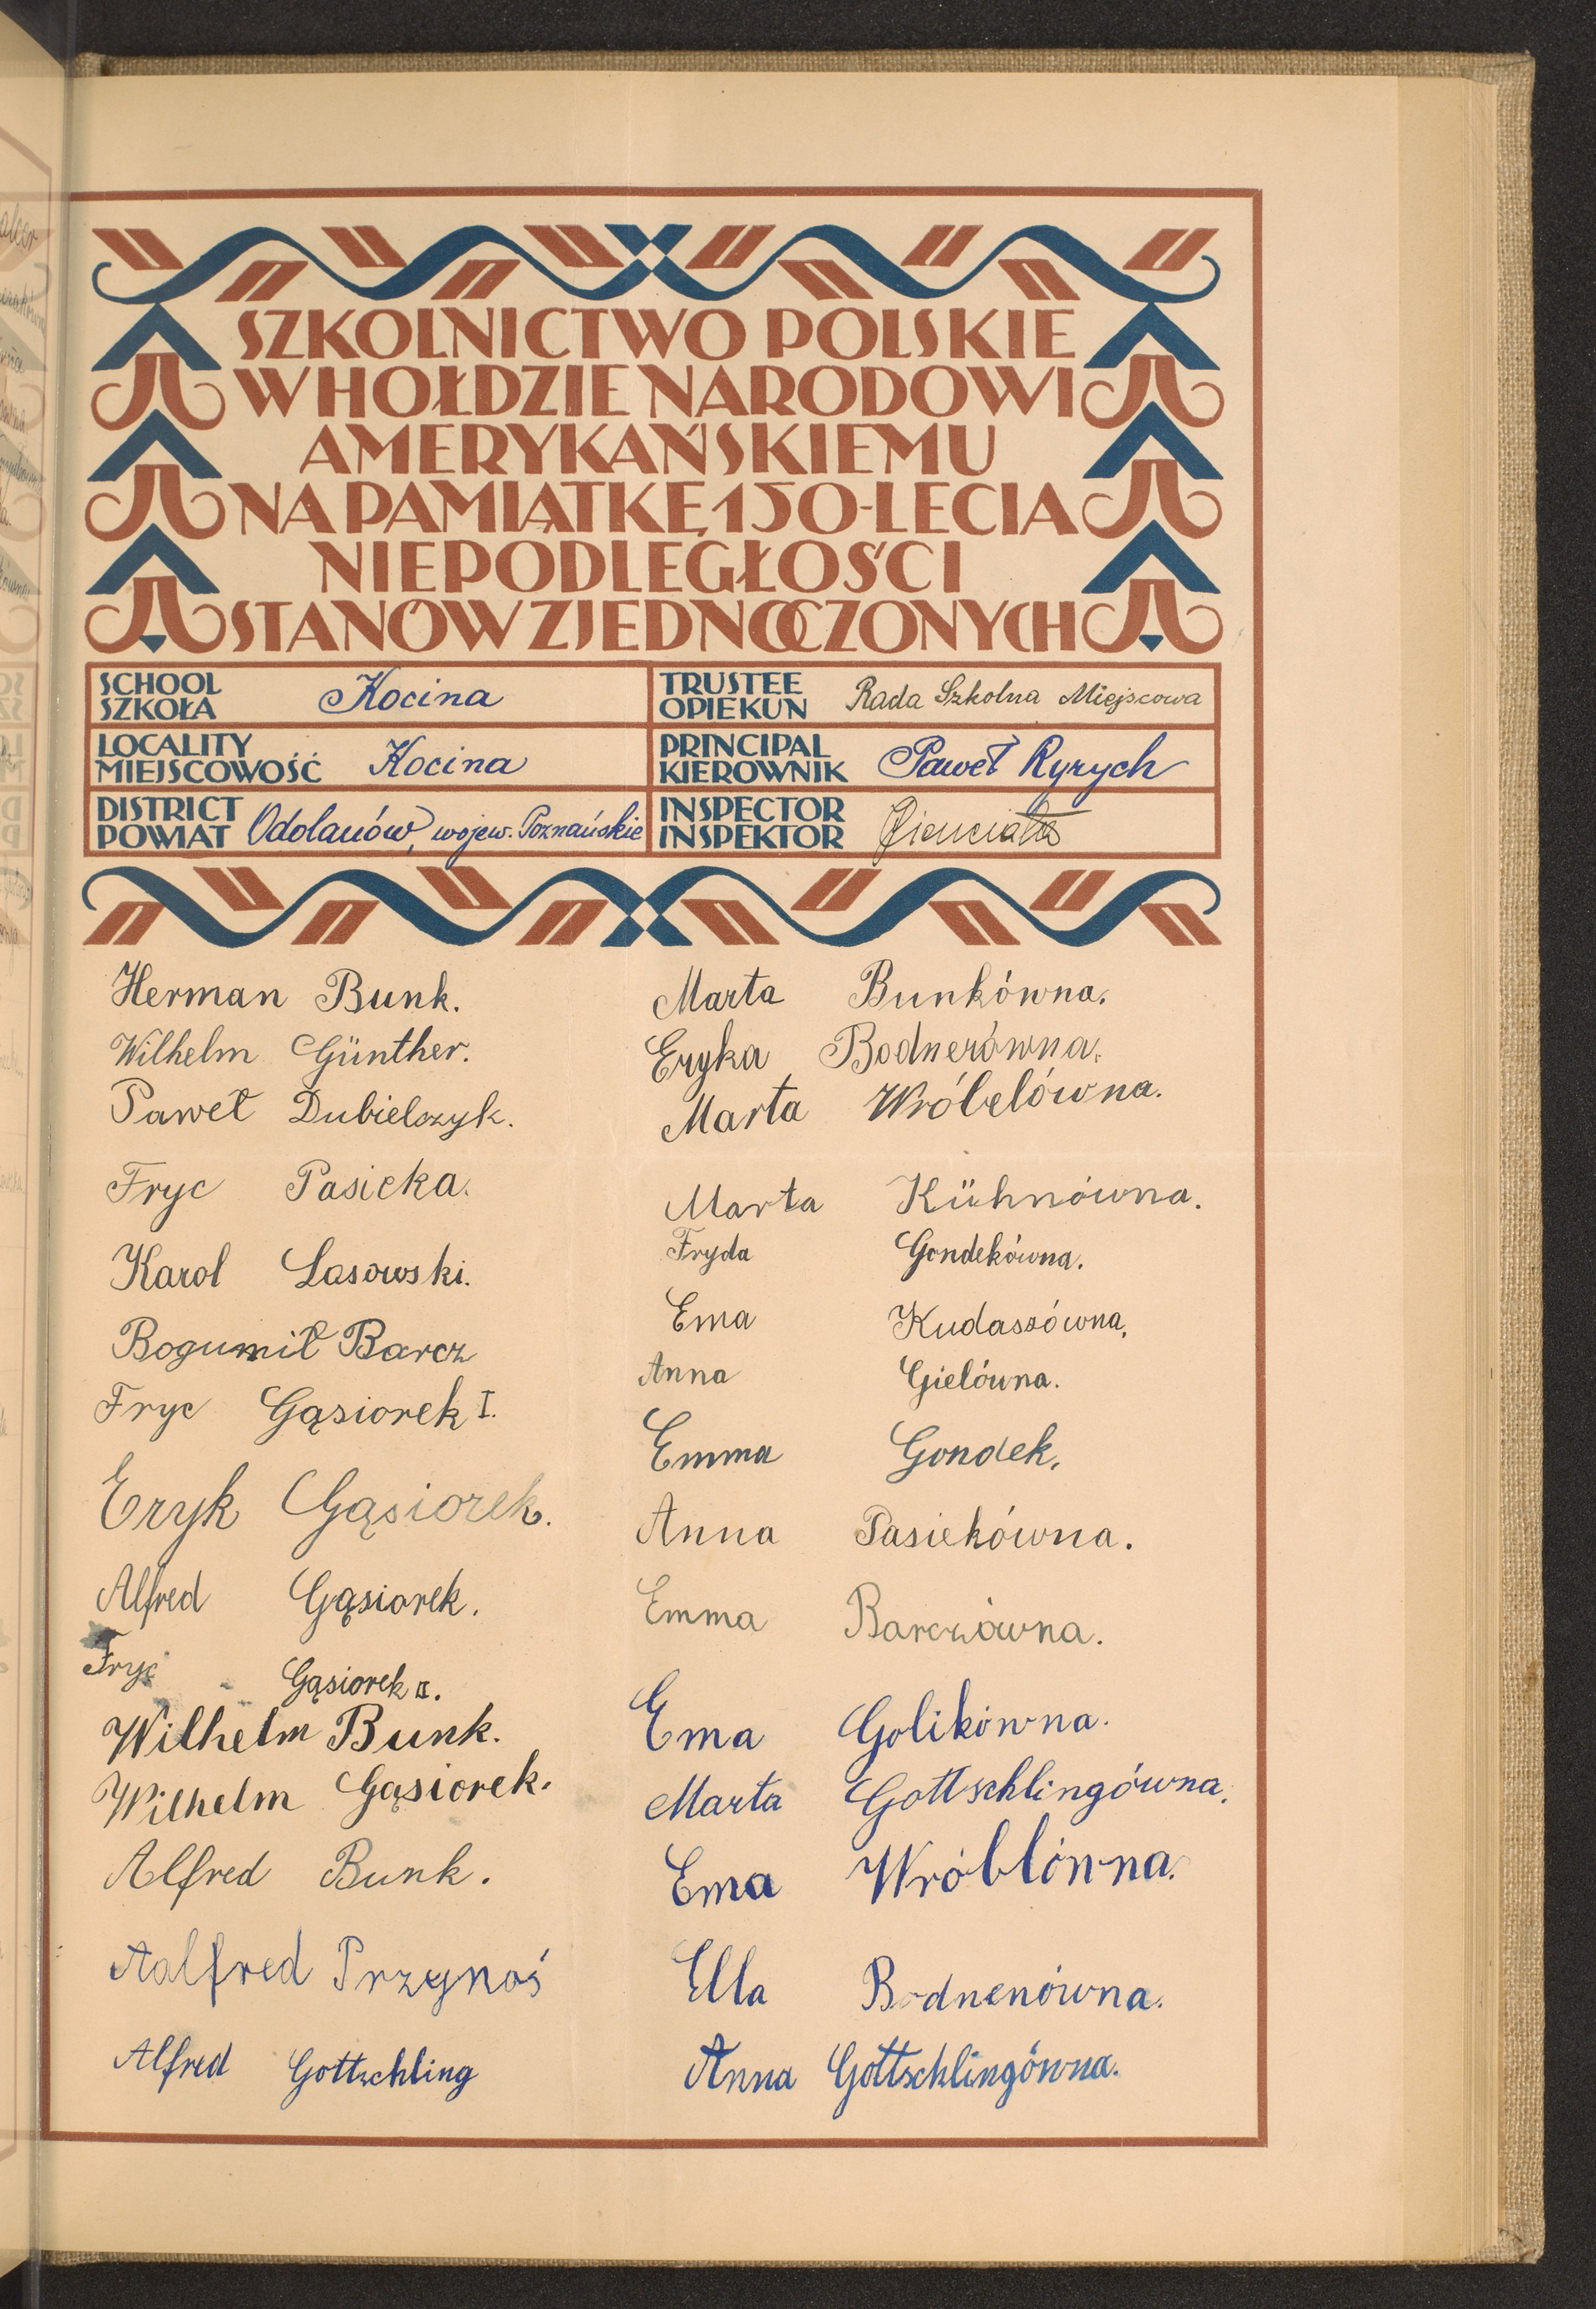 SZKOLNICTWO POLSKIE
W HOŁDZIE NARODOWI
AMERYKAŃSKIEMU
NA PAMIĄTKĘ 150-LECIA
NIEPODLEGŁOŚCI
STANÓW ZJEDNOCZONYCH
SCHOOL
SZKOŁA
Kocina
TRUSTEE
OPIEKUN
Rada Szkolna Miejscowa
LOCALITY
MIEJSCOWOŚĆ
Kocina
PRINCIPAL
KIEROWNIK
Paweł Ryrych
DISTRICT
POWIAT
Odolanów, wojew. Poznańskie
INSPECTOR
INSPEKTOR
Herman Bunk.
Wilhelm Günther.
Paweł Dubielczyk.
Fryc Pasieka.
Karol Lasowski.
Bogumił Barcz
Fryc Gąsiorek I.
Eryk Gąsiorek.
Alfred Gąsiorek.
Fryc Gąsiorek II.
Wilhelm Bunk.
Wilhelm Gąsiorek.
Alfred Bunk.
Aalfred Przynoś
Alfred Gottschling
Marta Bunkówna.
Eryka Bodnerówna.
Marta Wróbelówna.
Marta Kühnówna.
Fryda Gondekówna.
Ema Kudassówna.
Anna Gielówna.
Emma Gondek.
Anna Pasiekówna.
Emma Barczówna.
Ema Golikówna.
Marta Gottschlingówna.
Ema Wróblówna.
Ella Bodnenówna.
Anna Gottschlingówna.